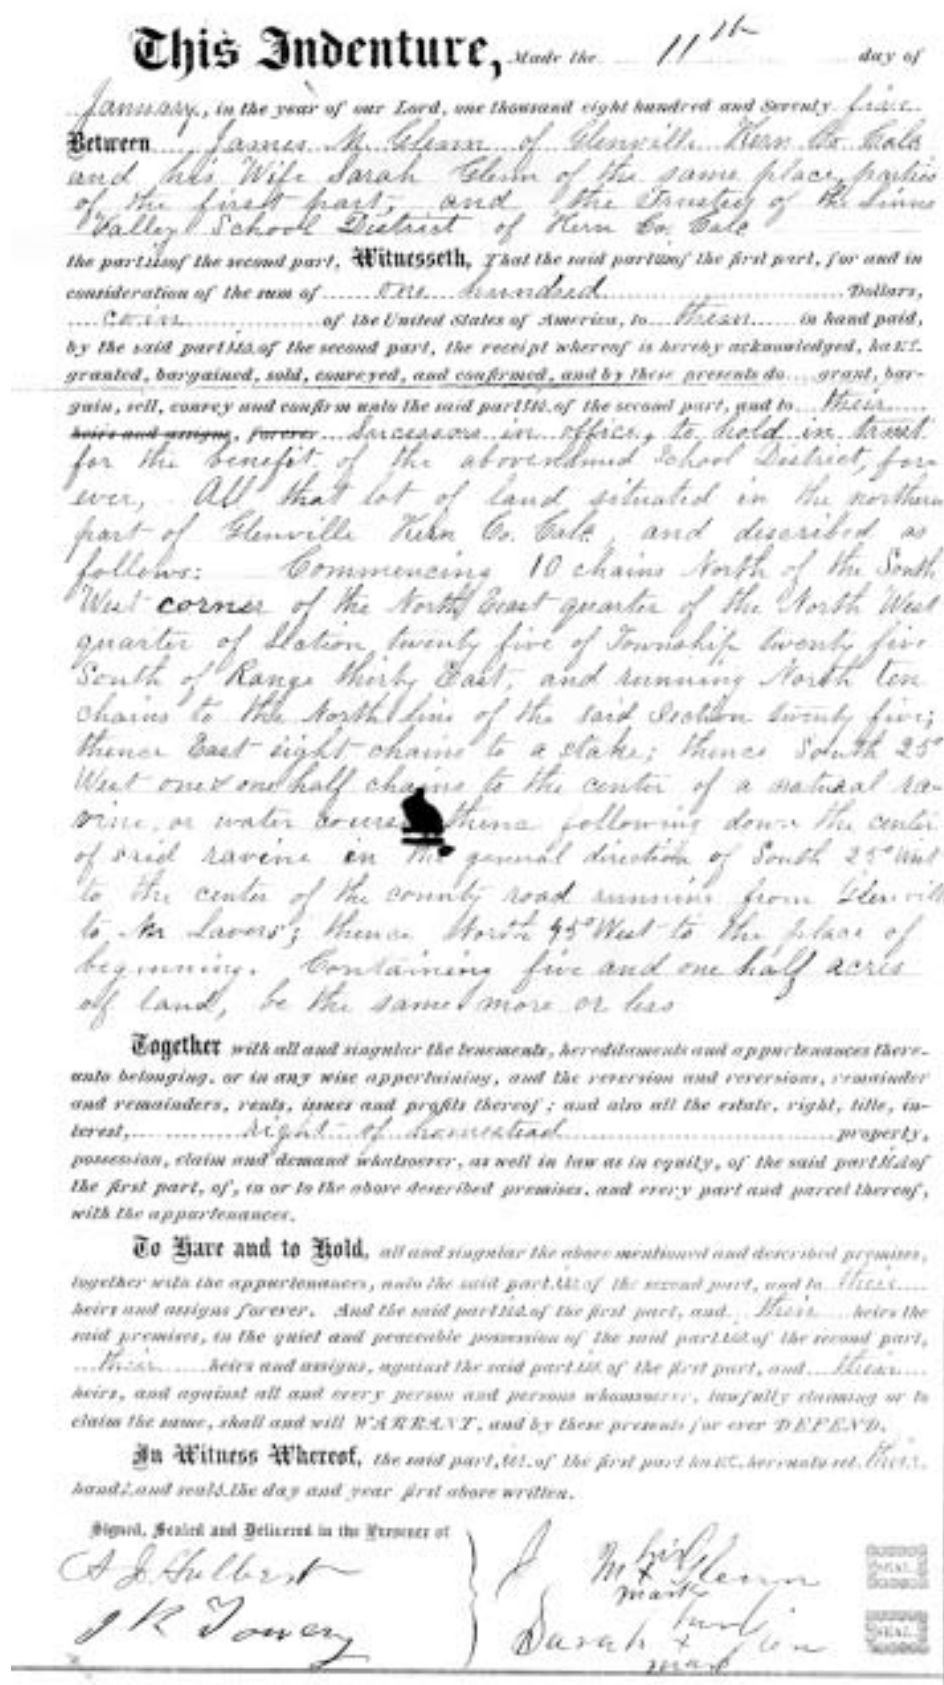 This Indenture, Made the 11th day of
January, in the year of our Lord, one thousand eight hundred and Seventy five
Between James M. Glenn of Glenville Kern Co Cala
and his Wife Sarah Glenn of the same place, parties
of the first part, and the Trustees of the Linns
Valley School District of Kern Co. Cala
the parties of the second part, Witnesseth, That the said parties of the first part, for and in
consideration of the sum of one hundred Dollars,
coin of the United States of America, to them in hand paid,
by the said parties of the second part, the receipt whereof is hereby acknowledged, have
granted, bargained, sold, conveyed, and confirmed, and by these presents do grant, bar-
gain, sell, convey and confirm unto the said parties of the second part, and to their
heirs and assigns, forever Successors in office, to hold in trust
for the benefit of the abovenamed School District, for-
ever, All that lot of land situated in the northern
part of Glenville Kern Co. Cala, and described as
follows: Commencing 10 chains North of the South
West corner of the North East quarter of the North West
quarter of Section twenty five of Township twenty five
South of Range thirty East, and running North ten
chains to the North line of the said Section twenty five;
thence East eight chains to a stake; thence South 25°
West one & one half chains to the center of a natural ra-
vine, or water course thence following down the center
of said ravine in the general direction of South 25° West
to the center of the county road running from Glenville
to Mr Lavers'; thence North 45° West to the place of
beginning. Containing five and one half acres
of land, be the same more or less
Together with all and singular the tenements, hereditaments and appurtenances there-
unto belonging, or in any wise appertaining, and the reversion and reversions, remainder
and remainders, rents, issues and profits thereof; and also all the estate, right, title, in-
terest, right of homestead property,
possession, claim and demand whatsoever, as well in law as in equity, of the said parties of
the first part, of, in or to the above described premises, and every part and parcel thereof,
with the appurtenances.
To Have and to Hold, all and singular the above mentioned and described premises,
together with the appurtenances, unto the said parties of the second part, and to their
heirs and assigns forever. And the said parties of the first part, and their heirs the
said premises, in the quiet and peaceable possession of the said parties of the second part,
their heirs and assigns, against the said parties of the first part, and their
heirs, and against all and every person and persons whomsoever, lawfully claiming or to
claim the same, shall and will WARRANT, and by these presents for ever DEFEND.
In Witness Whereof, the said parties of the first part have hereunto set their
hands and seals the day and year first above written.
Signed, Sealed and Delivered in the Presence of
J M his x mark Glenn SEAL
Sarah x mark SEAL